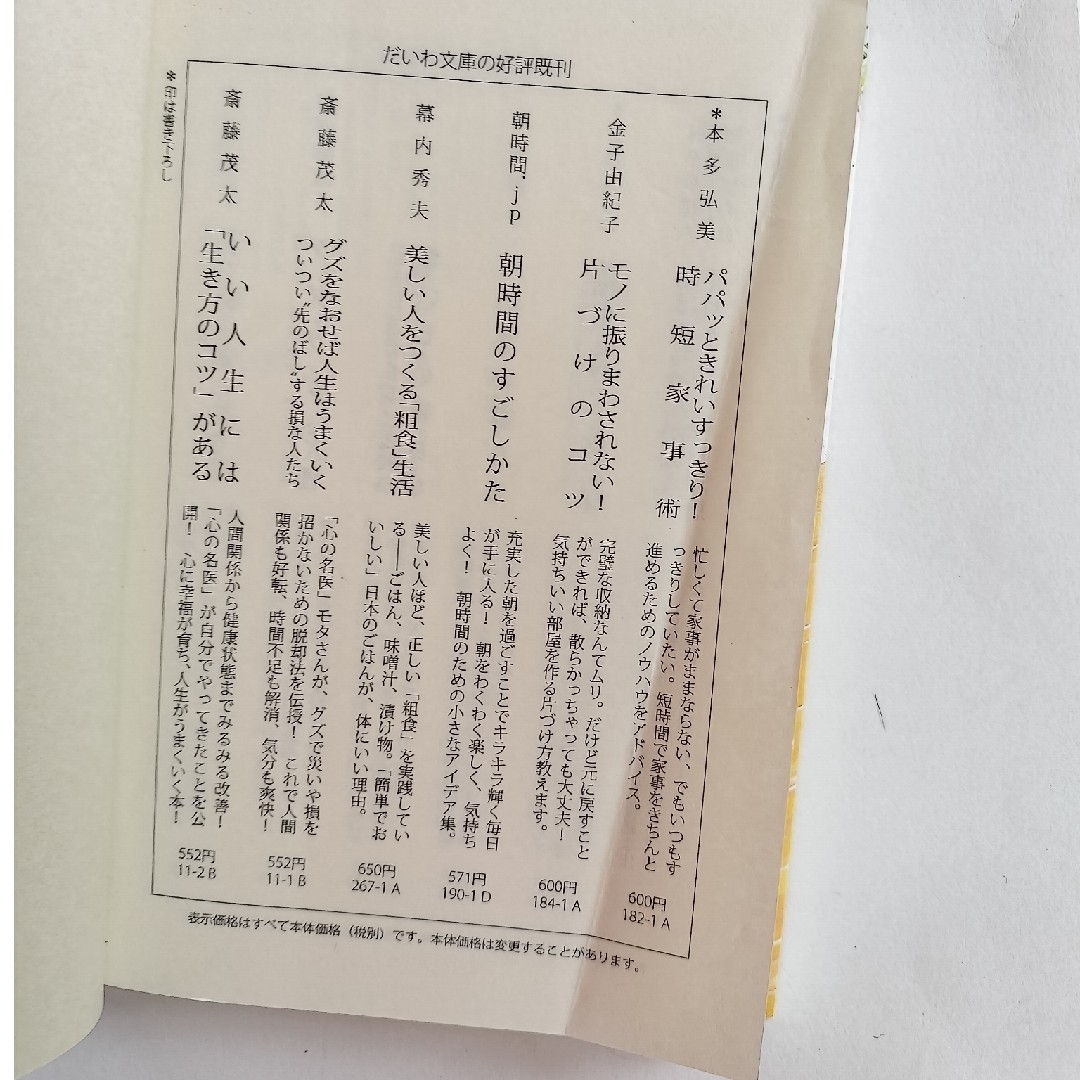 だいわ文庫の好評既刊
＊本多弘美
パパッときれいすっきり！
時短家事術
忙しくて家事がままならない、でもいつもす
っきりしていたい。短時間で家事をきちんと
進めるためのノウハウをアドバイス。
600円
182-1 A
金子由紀子
モノに振りまわされない！
片づけのコツ
完璧な収納なんてムリ。だけど元に戻すこと
ができれば、散らかっちゃっても大丈夫！
気持ちいい部屋を作る片づけ方教えます。
600円
184-1 A
朝時間.jp
朝時間のすごしかた
充実した朝を過ごすことでキラキラ輝く毎日
が手に入る！　朝をわくわく楽しく、気持ち
よく！　朝時間のための小さなアイデア集。
571円
190-1 D
幕内秀夫
美しい人をつくる「粗食」生活
美しい人ほど、正しい「粗食」を実践してい
る――ごはん、味噌汁、漬け物。「簡単でお
いしい」日本のごはんが、体にいい理由。
650円
267-1 A
斎藤茂太
グズをなおせば人生はうまくいく
ついつい“先のばし”する損な人たち
「心の名医」モタさんが、グズで災いや損を
招かないための脱却法を伝授！　これで人間
関係も好転、時間不足も解消、気分も爽快！
552円
11-1 B
斎藤茂太
いい人生には
「生き方のコツ」がある
人間関係から健康状態までみるみる改善！
「心の名医」が自分でやってきたことを公
開！　心に幸福が育ち、人生がうまくいく本！
552円
11-2 B
＊印は書き下ろし
表示価格はすべて本体価格（税別）です。本体価格は変更することがあります。